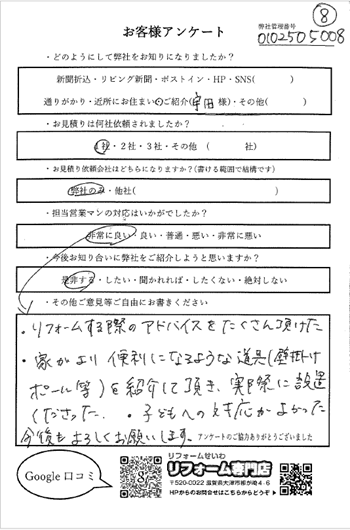 ⑧
お客様アンケート
弊社管理番号
0102505008
・どのようにして弊社をお知りになりましたか？
新聞折込・リビング新聞・ポストイン・HP・SNS(　　　)
通りがかり・近所にお住まいのご紹介(　　様)・その他(　　　)
・お見積りは何社依頼されましたか？
1社・2社・3社・その他　(　　　社)
・お見積り依頼会社はどちらになりますか？(書ける範囲で結構です)
弊社のみ・他社(　　　)
・担当営業マンの対応はいかがでしたか？
非常に良い・良い・普通・悪い・非常に悪い
・今後お知り合いに弊社をご紹介しようと思いますか？
是非する・したい・聞かれれば・したくない・絶対しない
・その他ご意見等ご自由にお書きください
・リフォームする際のアドバイスをたくさん頂けた
・家がより便利になるような道具(壁掛け
ポール等)を紹介して頂き、実際に設置
くださった。・子どもへの対応がよかった
今後もよろしくお願いします。アンケートのご協力ありがとうございました
Google口コミ
リフォームせいわ
リフォーム専門店
〒520-0022 滋賀県大津市柳が崎4-6
HPからのお問合せはこちらからどうぞ